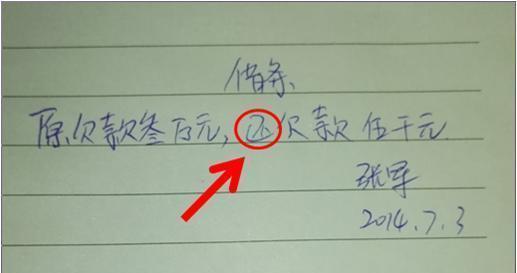 借条
原欠款叁万元,还欠款伍千元
张军
2014.7.3